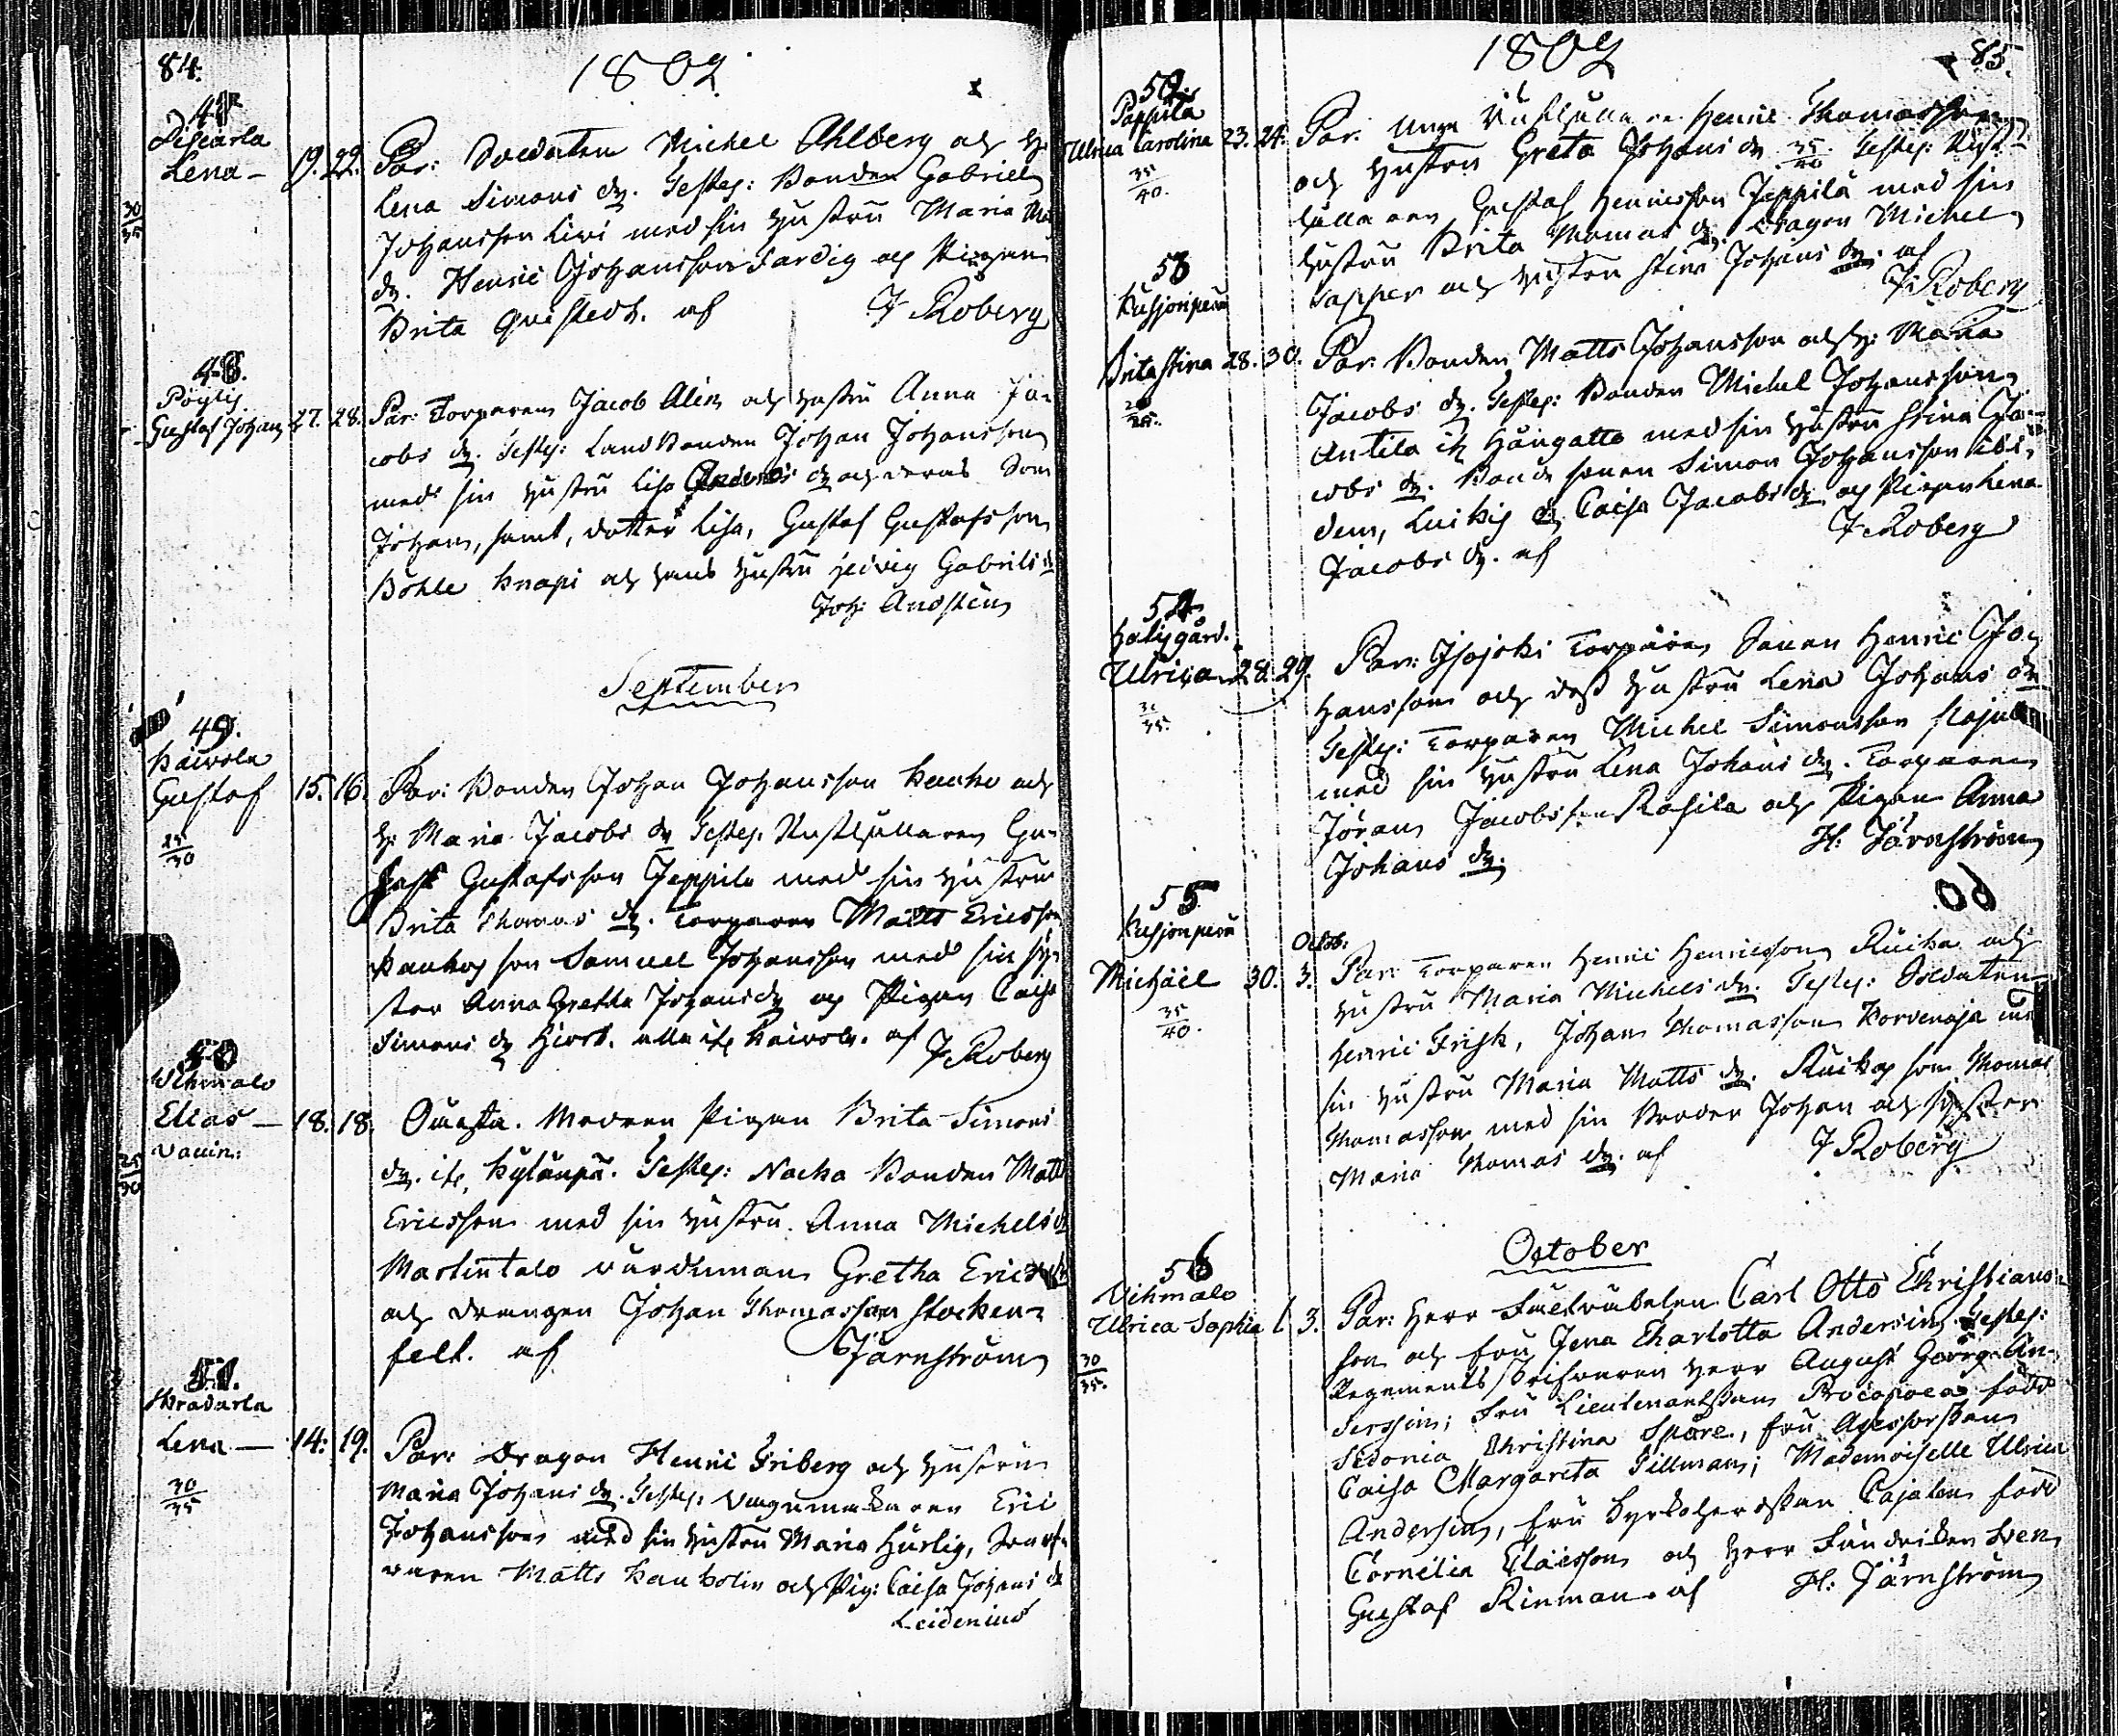 84.
1802
47
Lena — 19. 22. Par: Soldaten Michel Ahlberg och H:
30/35
Lena Simons dr. Testes: Bonden Gabriel
Johansson Livi med sin hustru Maria
dr. Henric Johansson Fardig och Pigan
Brita Quistedt. af J Roberg
48.
Pöytis
Gustaf Johan 27. 28. Par: Torparen Jacob Alin och hustru Anna Ja-
cobs dr. Testes: Landbonden Johan Johansson
med sin hustru Lisa dr och deras Son
Johan, samt, dotter Lisa, Gustaf Gustafsson
Böhle Knapi och hans hustru Hedvig Gabriels dr
Joh: Andsten
September
49.
Kaivola
Gustaf 15. 16. Par: Bonden Johan Johansson Kauko och
25/30
H: Maria Jacobs dr Testes. Rusthållaren Gu-
staf Gustafsson Jeppila med sin hustru
Brita Thomas dr. Torparen Matts Ericsson
son Samuel Johansson med sin sy-
ster Anna Gretha Johans dr och Pigan Caisa
Simons dr alla ifr Kaivola. af J Roberg
50
Vihmalo
Elias — 18. 18. Oäckta. Modren Pigan Brita Simons
25/30
dr. ifr. Kylänpä. Testes: Nocka Bonden Matts
Ericsson med sin hustru Anna Michels dr
Martintalo Gretha Erics
och drengen Johan Thomasson Stocken-
felt. af Järnström
51.
Lena — 14: 19. Par: Dragon Henric Friberg och hustrun
30/35
Maria Johans dr. Testes: Vagnmakaren Eric
Johansson med sin hustru Maria Hurlig,
Matts Kankolin och Pig: Caisa Johans dr
Leidenius
1802 85.
52.
Pappila
Ulrica Carolina 23. 24. Par: Unga Rusthållaren Henric Thomasson
35/40.
och hustrun Greta Johans dr 35/40 Testes: Rust-
hållaren Gustaf Henricsson Jeppila med sin
hustru Brita Thomas dr. Dragon Michel
Tapper och hustru Stina Johans dr. af
J Roberg
53
Kusjonperä
Brita Stina 28. 30. Par: Bonden Matts Johansson och H: Maria
Jacobs dr. Testes: Bonden Michel Johansson
Antila ifr Hångatta med sin hustru Stina Ja-
cobs dr. Bonde sonen Simon Johansson ibi-
dem, Caisa Jacobs dr och Pigan Lena
Jacobs dr. af J Roberg
54
Halisgård.
Ulrica 28. 29. Par: Isojoki Torpare Sonen Henric Jo-
35.
hansson och dess hustru Lena Johans dr
Testes: Torparen Michel Simonsson
med sin hustru Lena Johans dr. Torparen
Jöran Jacobsson Rasila och Pigan Anna
Johans dr. H: Järnström
55
Kusjonperä
Octob:
Michäel 30. 3. Par: Torparen Henric Henricsson Ruika och
35/40.
hustru Maria Michels dr. Testes: Soldaten
Henric Frisk, Johan Thomasson Korvenoja med
sin hustru Maria Matts dr. Ruikas son Thomas
Thomasson med sin Broder Johan och syster
Maria Thomas dr. af J Roberg
October
56
Vihmalo
Ulrica Sophia 1 3. Par: Herr Carl Otto Christians-
30/35.
son och fru Jena Charlotta Andersin, Testes:
Regements Skrifvaren Herr August Georg An-
derssin; Fru Lieutenantskan Procopoea född
Sidonia Christina Spåre, fru Assessorskan
Caisa Margareta Tillman; Mademoiselle Ulrica
Andersin, fru Kyrkoherdskan Cajalen född
Cornelia Claësson och Herr Fändriken Sven
Gustaf Rinman. af H: Järnström